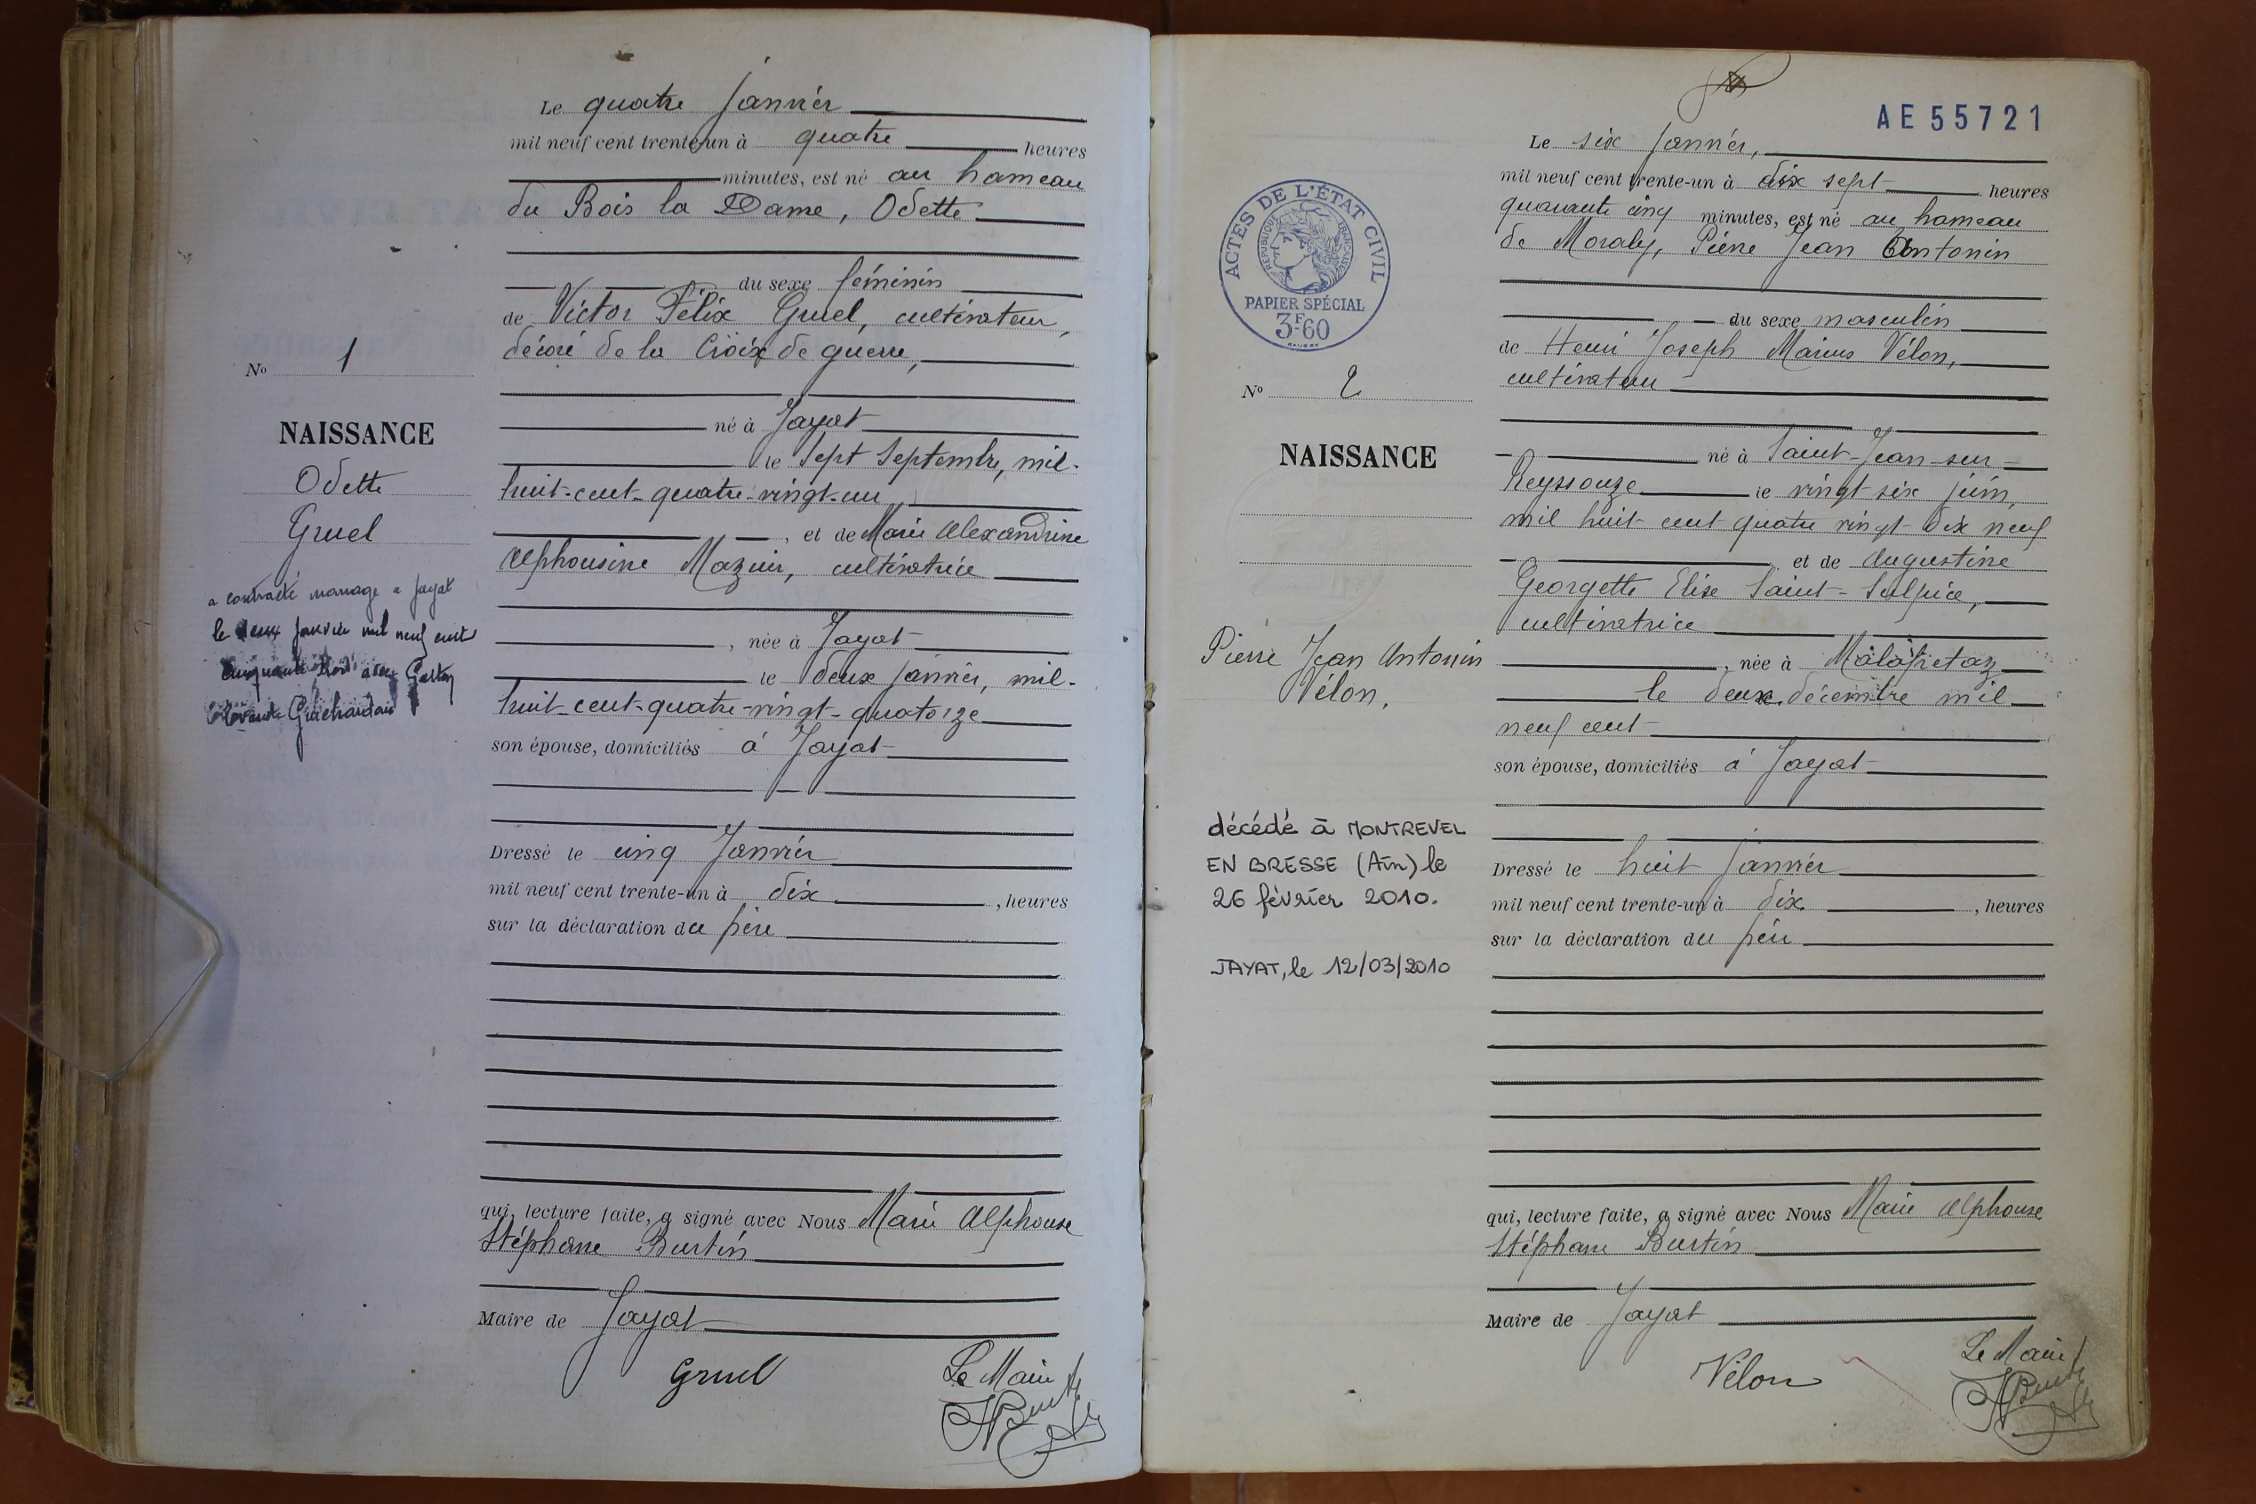 Le quatre Janvier
mil neuf cent trente-un à quatre heures
minutes, est né au hameau
du Bois la Dame, Odette
du sexe féminin
de Victor Félix Gruel, cultivateur,
décoré de la Croix de guerre,
né à Jayat
le sept Septembre, mil-
huit-cent-quatre-vingt-un
, et de Marie Alexandrine
Alphonsine Mazuir, cultivatrice
, née à Jayat
le deux janvier, mil-
huit-cent-quatre-vingt-quatorze
son épouse, domiciliés à Jayat
Dressé le cinq Janvier
mil neuf cent trente-un à dix , heures
sur la déclaration du père
qui, lecture faite, a signé avec Nous Marie Alphonse
Stéphane Burtin
Maire de Jayat
Gruel
Le Maire
No 1
NAISSANCE
Odette
Gruel
a contracté mariage a Jayat
le deux Janvier mil neuf cent
cinquante trois avec Gaston
AE 55721
Le six Janvier,
mil neuf cent trente-un à dix sept heures
quarante cinq minutes, est né au hameau
de Moraly, Pierre Jean Antonin
du sexe masculin
de Henri Joseph Marius Vélon,
cultivateur
né à Saint-Jean-sur-
Reyssouze le vingt-six juin,
mil huit-cent quatre vingt-dix neuf
et de Augustine
Georgette Elise Saint-Sulpice,
cultivatrice
, née à Malafretaz
le deux décembre mil
neuf cent
son épouse, domiciliés à Jayat
Dressé le huit Janvier
mil neuf cent trente-un à dix , heures
sur la déclaration du père
qui, lecture faite, a signé avec Nous Marie Alphonse
Stéphane Burtin
Maire de Jayat
Vélon
Le Maire
ACTES DE L'ÉTAT CIVIL
RÉPUBLIQUE FRANÇAISE
PAPIER SPÉCIAL
3F60
No 2
NAISSANCE
Pierre Jean Antonin
Vélon,
décédé à MONTREVEL
EN BRESSE (Ain) le
26 février 2010.
JAYAT, le 12/03/2010